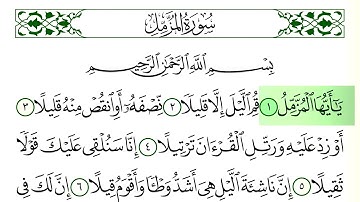 سُورَةُ الْمُزَّمِّل
بِسْمِ ٱللَّهِ ٱلرَّحْمَٰنِ ٱلرَّحِيمِ
يَٰٓأَيُّهَا ٱلْمُزَّمِّلُ ١ قُمِ ٱلَّيْلَ إِلَّا قَلِيلًا ٢ نِّصْفَهُۥٓ أَوِ ٱنقُصْ مِنْهُ قَلِيلًا ٣
أَوْ زِدْ عَلَيْهِ وَرَتِّلِ ٱلْقُرْءَانَ تَرْتِيلًا ٤ إِنَّا سَنُلْقِى عَلَيْكَ قَوْلًا
ثَقِيلًا ٥ إِنَّ نَاشِئَةَ ٱلَّيْلِ هِىَ أَشَدُّ وَطْـًٔا وَأَقْوَمُ قِيلًا ٦ إِنَّ لَكَ فِى